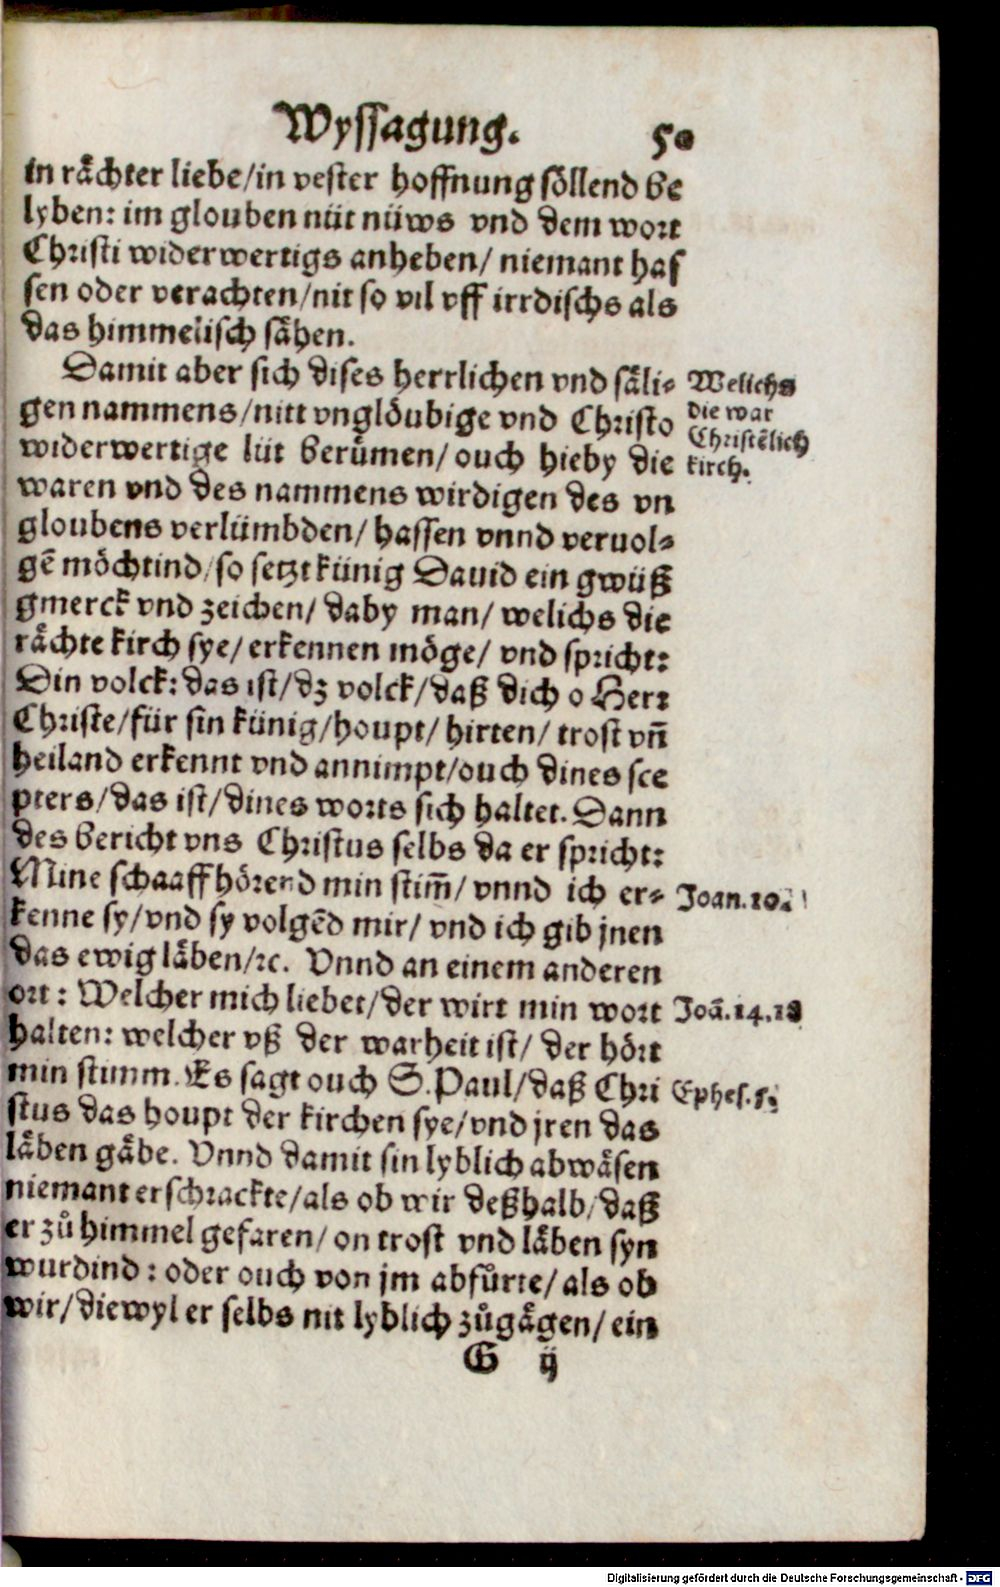 Wyssagung. 50
in rächter liebe/in vester hoffnung söllend be
lyben: im glouben nüt nüws vnd dem wort
Christi widerwertigs anheben/ niemant has
sen oder verachten/nit so vil vff irrdischs als
das himmelisch sähen.
Damit aber sich dises herrlichen vnd säli-
gen nammens/nitt vnglöubige vnd Christo
widerwertige lüt berümen/ ouch hieby die
waren vnd des nammens wirdigen des vn
gloubens verlümbden/ hassen vnnd veruol-
gē möchtind/so setzt künig Dauid ein gwüß
gmerck vnd zeichen/ daby man/ welichs die
rächte kirch sye/ erkennen möge/ vnd spricht:
Din volck: das ist/dz volck/daß dich o Herr
Christe/für sin künig/houpt/ hirten/ trost vñ
heiland erkennt vnd annimpt/ouch dines sce
pters/das ist/dines worts sich haltet. Dann
des bericht vns Christus selbs da er spricht:
Mine schaaff hörend min stim̄/ vnnd ich er-
kenne sy/vnd sy volgēd mir/ vnd ich gib jnen
das ewig läben/ꝛc. Vnnd an einem anderen
ort: Welcher mich liebet/der wirt min wort
halten: welcher vß der warheit ist/ der hört
min stimm. Es sagt ouch S. Paul/daß Chri
stus das houpt der kirchen sye/vnd jren das
läben gäbe. Vnnd damit sin lyblich abwäsen
niemant erschrackte/als ob wir deßhalb/daß
er zů himmel gefaren/ on trost vnd läben syn
wurdind: oder ouch von jm abfůrte/als ob
wir/diewyl er selbs nit lyblich zůgägen/ ein
G ij
Welichs
die war
Christēlich
kirch.
Joan.10.
Joā.14.18
Ephes.5.
Digitalisierung gefördert durch die Deutsche Forschungsgemeinschaft - DFG